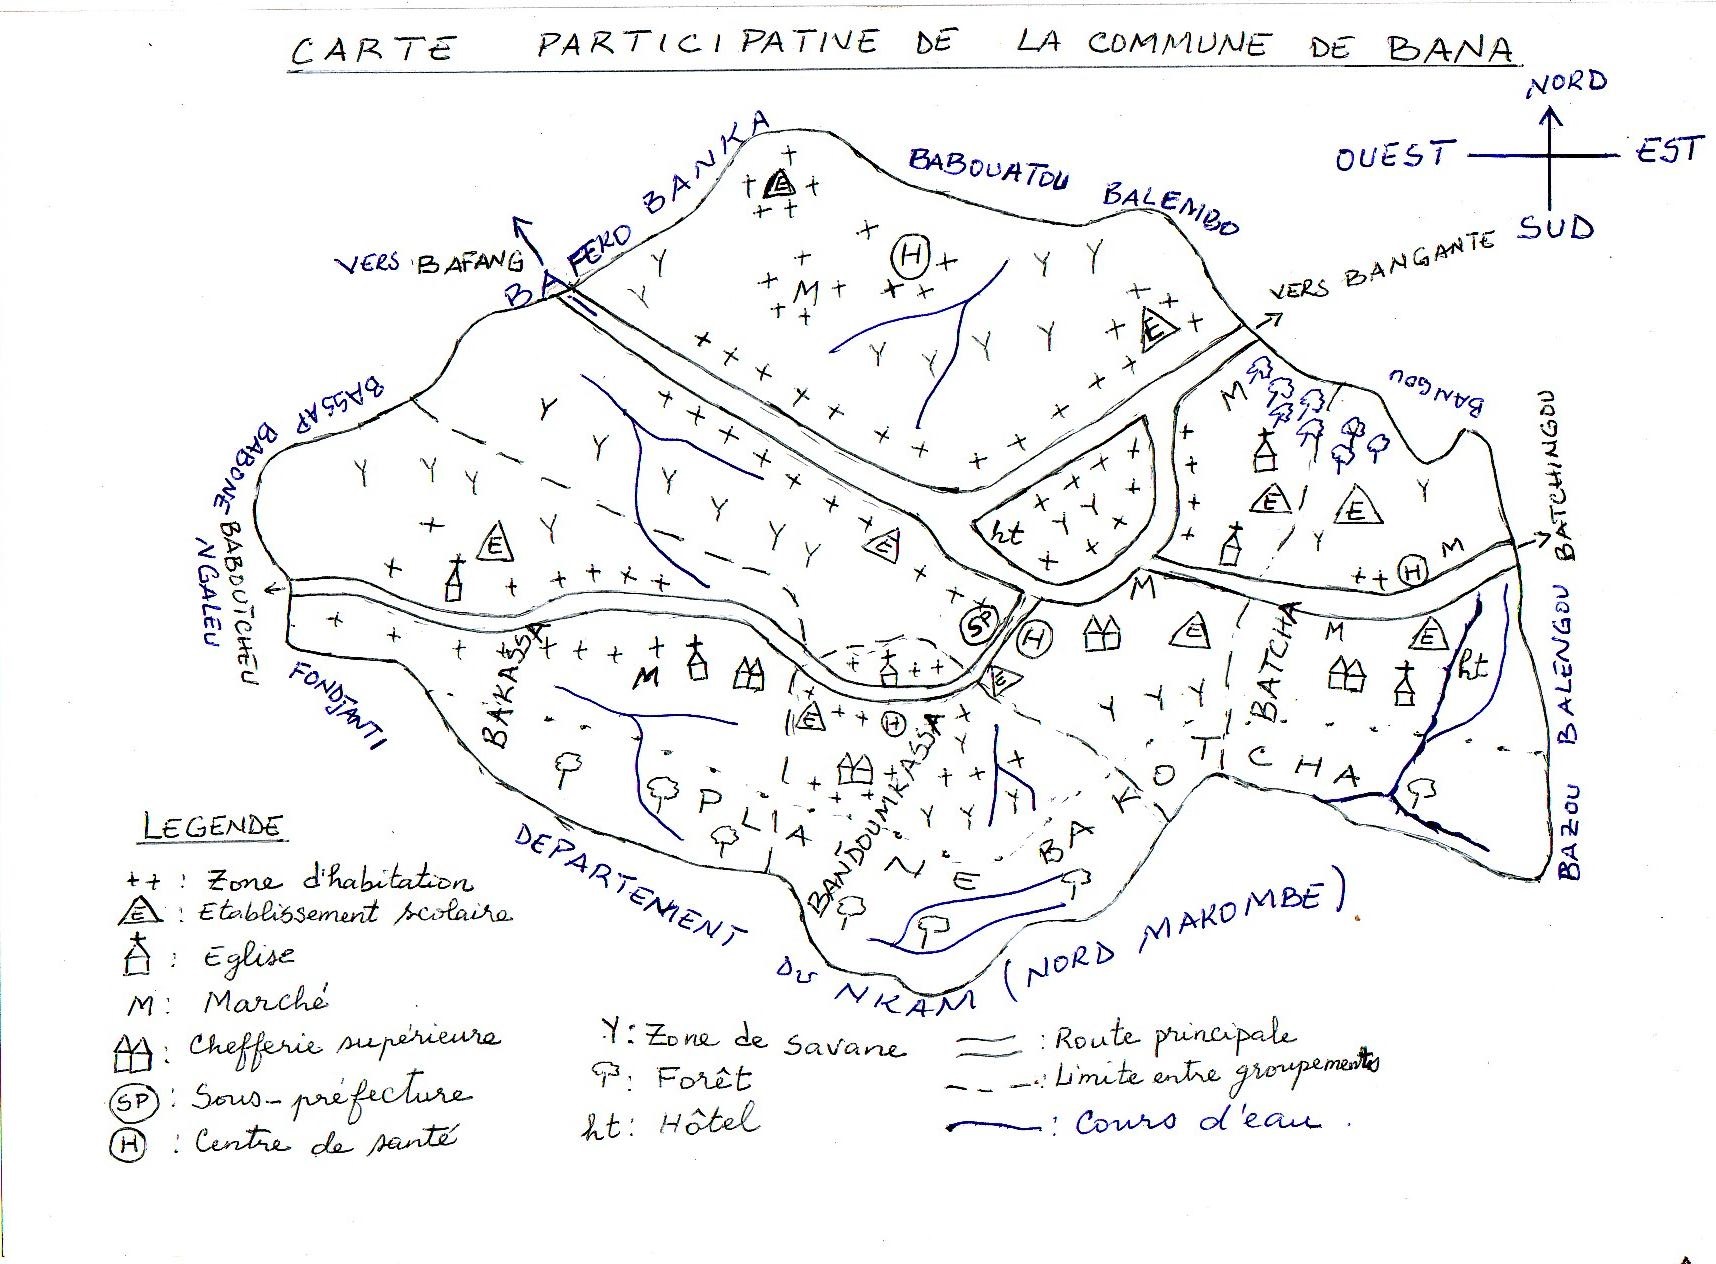 CARTE PARTICIPATIVE DE LA COMMUNE DE BANA
NORD
OUEST EST
SUD
BANKA
BABOUATOU BALEMBO
BAFEKO
VERS BAFANG
VERS BANGANTE
E
H
M
E
BANGOU
M
BASSAP
BABONE
BABOUTCHEU
NGALEU
FONDJANTI
BATCHINGOU
BALENGOU
BAZOU
E
E
E
E
ht
M
H
SP
H
M
E
M
E
ht
BAKASSA
M
E
BATCHA
E
H
BANDOUMKASSA
PLIA NE BAKOTICHA
DEPARTEMENT DU NKAM (NORD MAKOMBE).
LEGENDE
++ : Zone d'habitation
E : Etablissement scolaire
: Eglise
M : Marché
: Chefferie supérieure
SP : Sous-préfecture
H : Centre de santé
Y : Zone de savane
: Forêt
ht : Hôtel
: Route principale
: Limite entre groupements
: Cours d'eau.